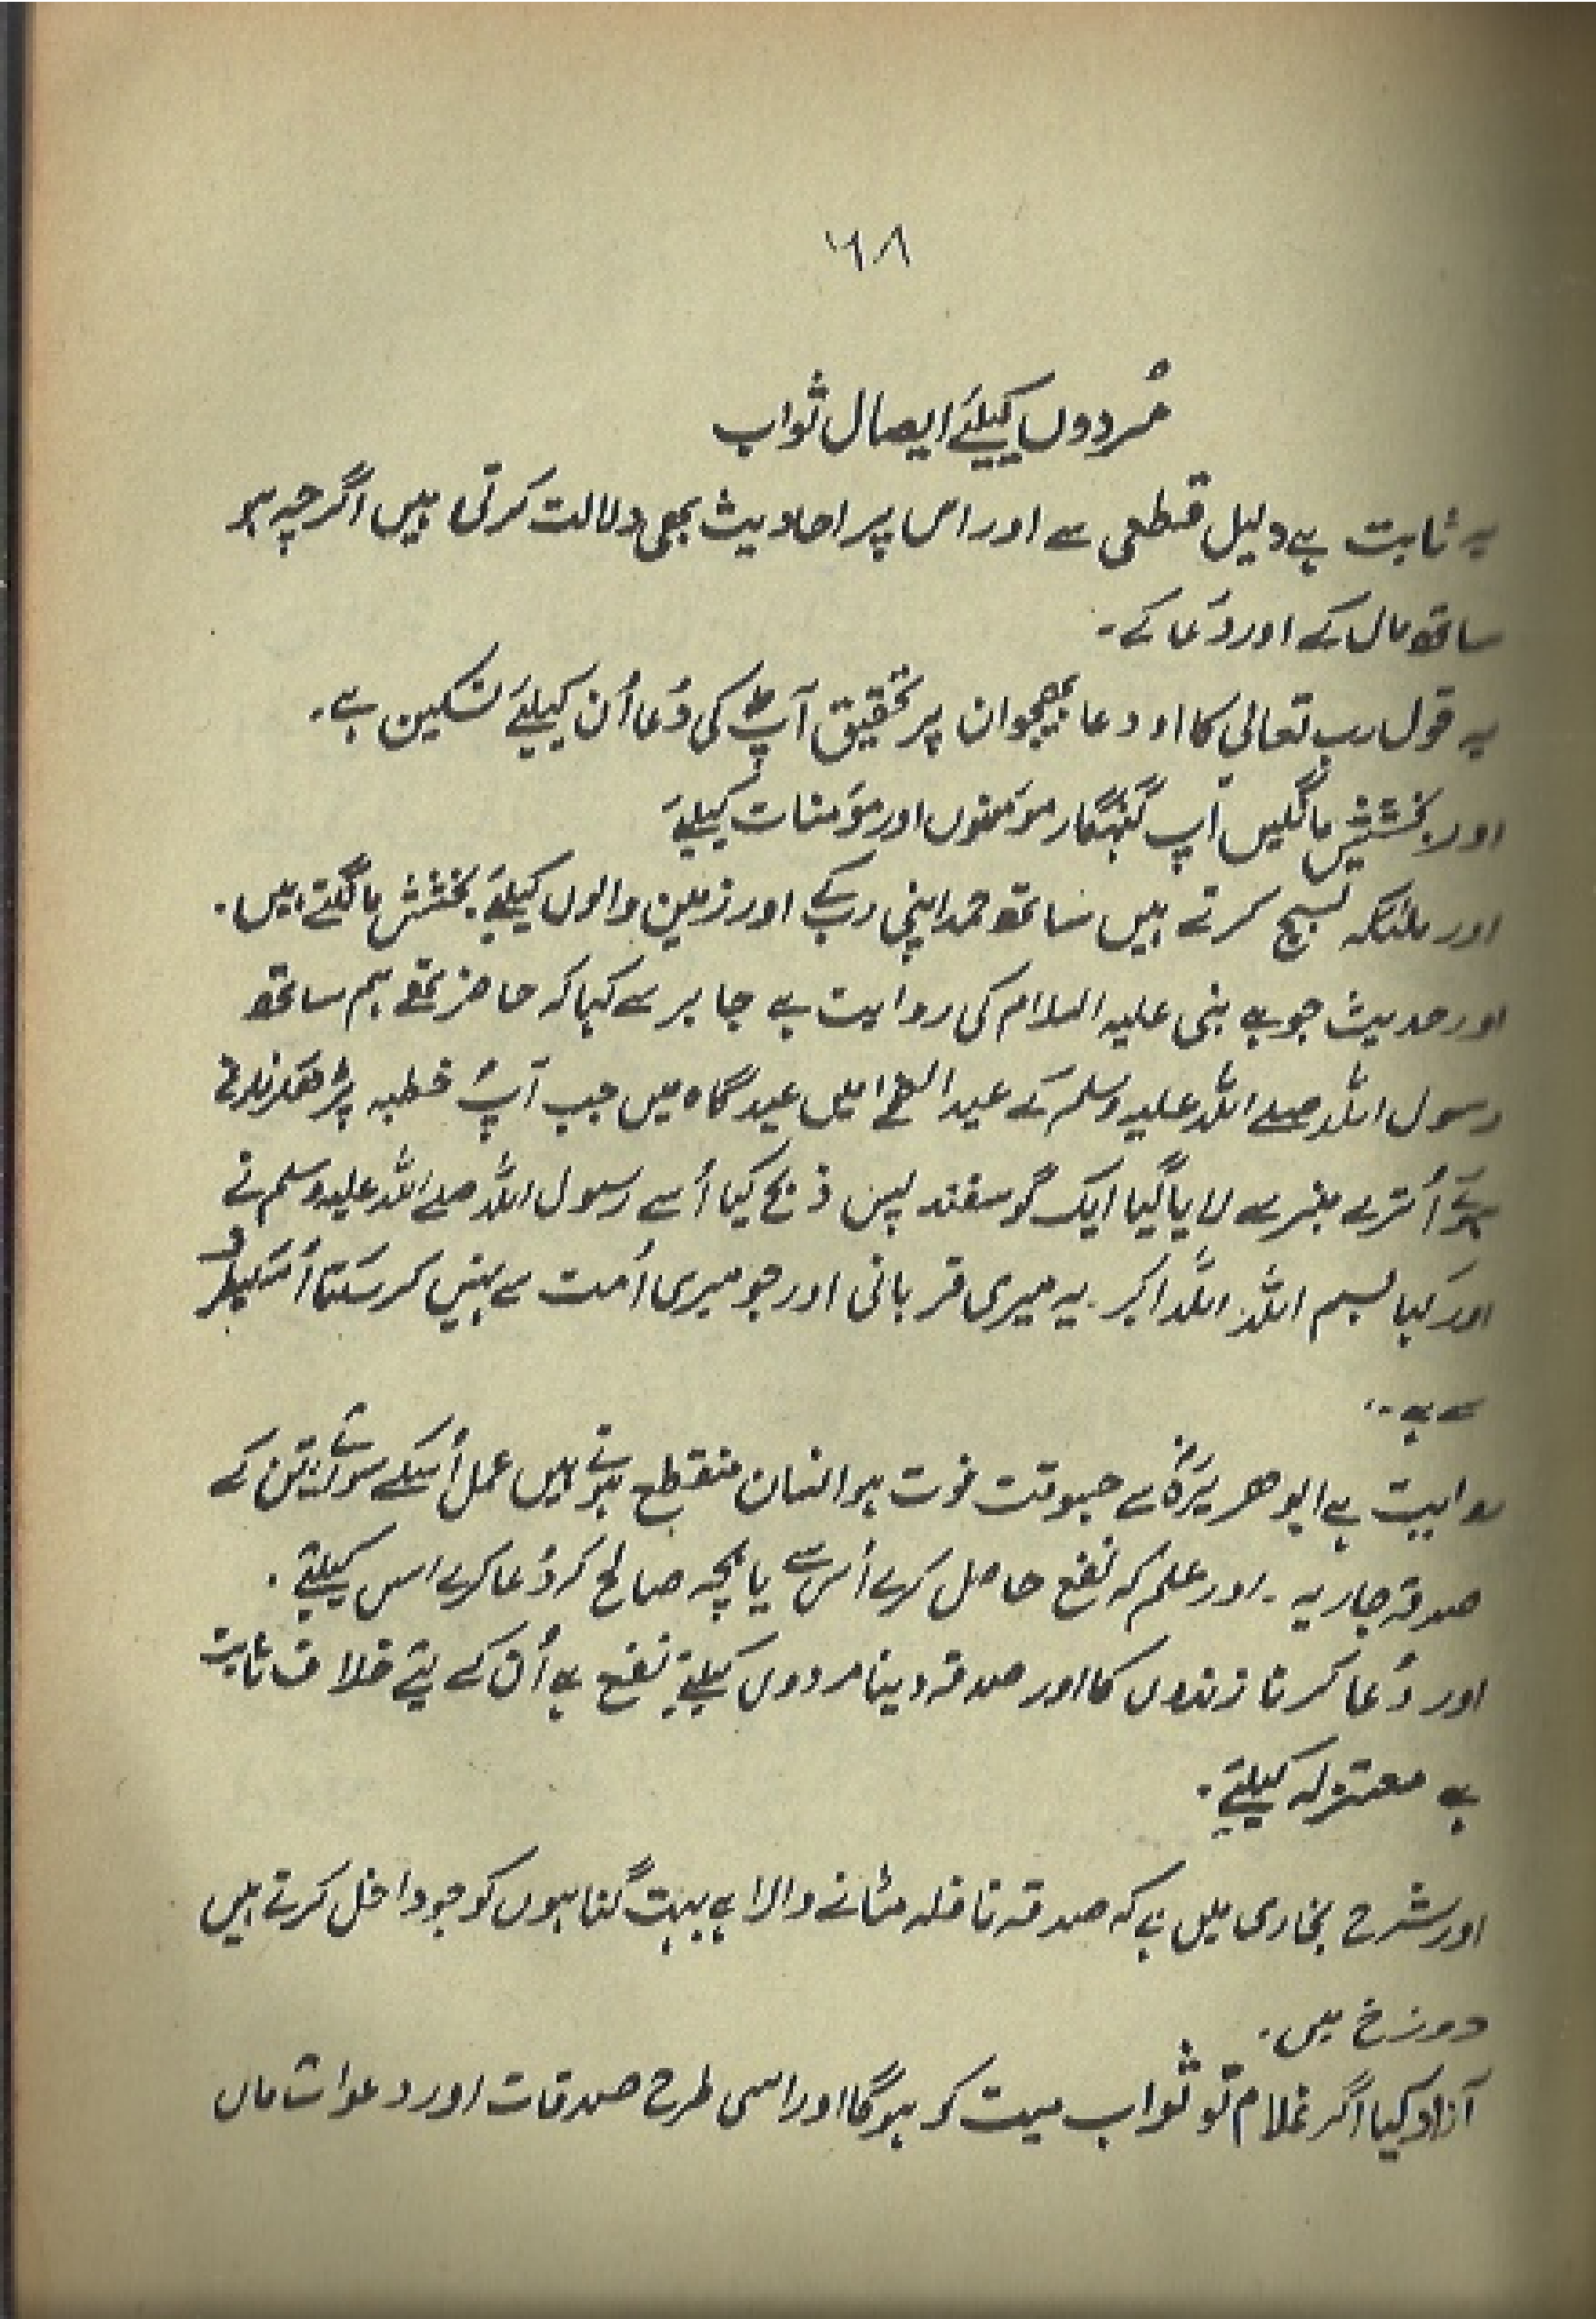 ٦٨
مُردوں کیلئے ایصال ثواب
یہ ثابت ہے دلیل قطعی سے اور اس پر احادیث بھی دلالت کرتی ہیں اگرچہ ہو
ساتھ مال کے اور دُعا کے۔
یہ قول رب تعالیٰ کا اور دعا بھیجو ان پر تحقیق آپؐ کی دُعا اُن کیلئے تسکین ہے۔
اور بخشش مانگیں آپ گنہگار مومنوں اور مؤمنات کیلئے
اور ملئکہ تسبیح کرتے ہیں ساتھ حمد اپنی رب کے اور زمین والوں کیلئے بخشش مانگتے ہیں۔
اور حدیث جو ہے نبی علیہ السلام کی روایت ہے جابر سے کہا کہ حاضر تھے ہم ساتھ
رسول اللہ صلے اللہ علیہ وسلم کے عید الضحےٰ میں عیدگاہ میں جب آپؐ خطبہ پڑھکر
اُترے منبر سے لایا گیا ایک گوسفند پس ذبح کیا اُسے رسول اللہ صلے اللہ علیہ وسلم نے
اور کہا بسم اللہ اللہ اکبر۔ یہ میری قربانی اور جو میری اُمت سے نہیں کر سکتا اُسکیطرف
سے ہے۔
روایت ہے ابو ھریرہؓ سے جسوقت فوت ہو انسان منقطع ہوتے ہیں عمل اُسکے سوائے تین کے
صدقہ جاریہ۔ اور علم کہ نفع حاصل کرے اُس سے یا بچہ صالح کہ دُعا کرے اس کیلئے۔
اور دُعا کرنا زندوں کا اور صدقہ دینا مردوں کیلئے نفع ہے اُن کے لئے خلاف ثابت
ہے معتزلہ کیلئے۔
اور شرح بخاری میں ہے کہ صدقہ نافلہ مٹانے والا ہے بہت گناہوں کو جو داخل کرتے ہیں
دوزخ میں۔
آزاد کیا اگر غلام تو ثواب میت کو ہوگا اور اسی طرح صدقات اور دعوات ماں